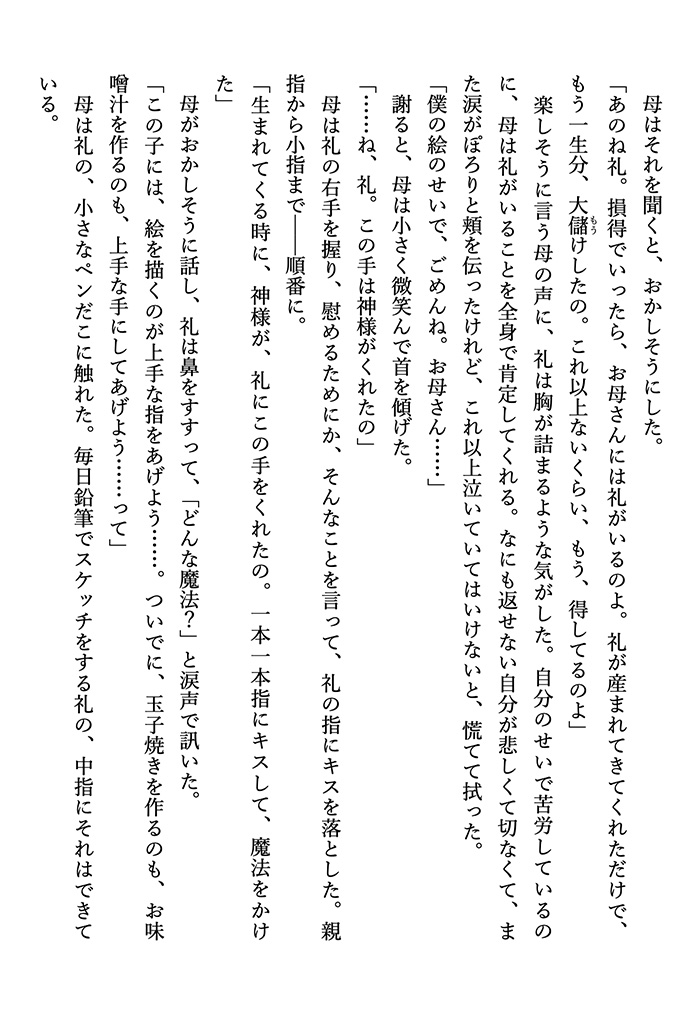 母はそれを聞くと、おかしそうにした。
「あのね礼。損得でいったら、お母さんには礼がいるのよ。礼が産まれてきてくれただけで、
もう一生分、大儲けしたの。これ以上ないくらい、もう、得してるのよ」
　楽しそうに言う母の声に、礼は胸が詰まるような気がした。自分のせいで苦労しているの
に、母は礼がいることを全身で肯定してくれる。なにも返せない自分が悲しくて切なくて、ま
た涙がぽろりと頬を伝ったけれど、これ以上泣いていてはいけないと、慌てて拭った。
「僕の絵のせいで、ごめんね。お母さん……」
　謝ると、母は小さく微笑んで首を傾げた。
「……ね、礼。この手は神様がくれたの」
　母は礼の右手を握り、慰めるためにか、そんなことを言って、礼の指にキスを落とした。親
指から小指まで――順番に。
「生まれてくる時に、神様が、礼にこの手をくれたの。一本一本指にキスして、魔法をかけ
た」
　母がおかしそうに話し、礼は鼻をすすって、「どんな魔法？」と涙声で訊いた。
「この子には、絵を描くのが上手な指をあげよう……。ついでに、玉子焼きを作るのも、お味
噌汁を作るのも、上手な手にしてあげよう……って」
　母は礼の、小さなペンだこに触れた。毎日鉛筆でスケッチをする礼の、中指にそれはできて
いる。